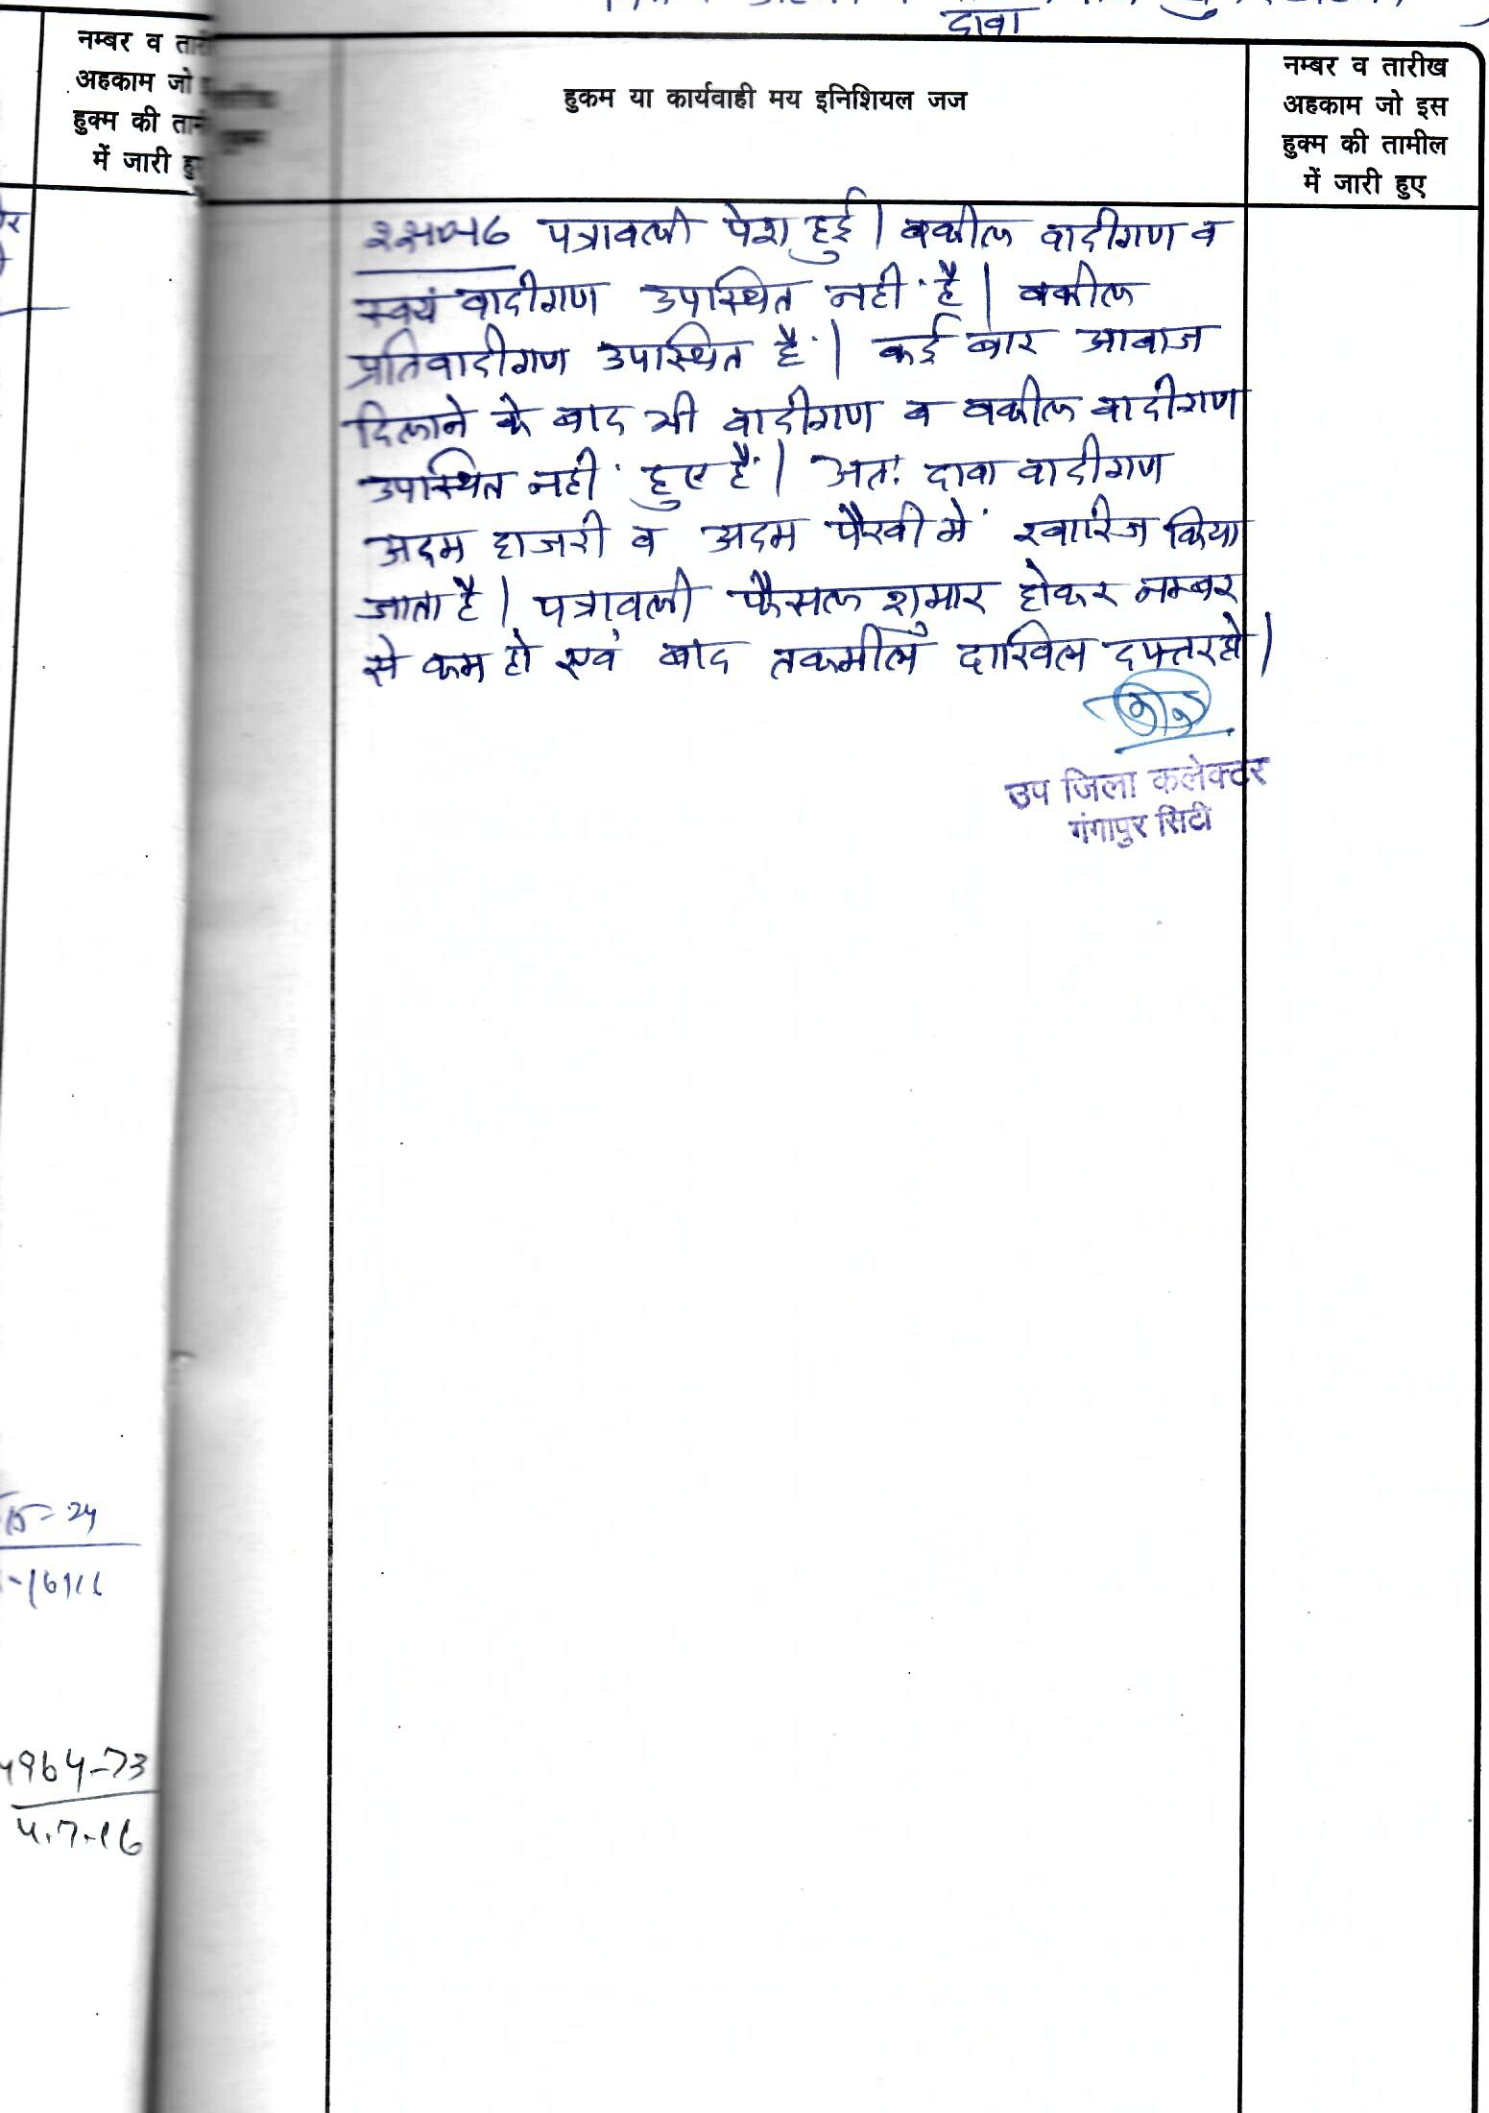 दावा
नम्बर व
अहकाम जो
हुक्म की
में जारी
हुकम या कार्यवाही मय इनिशियल जज
नम्बर व तारीख
अहकाम जो इस
हुक्म की तामील
में जारी हुए
पत्रावली पेश हुई। वकील वादीगण व
स्वयं वादीगण उपस्थित नही है। वकील
प्रतिवादीगण उपस्थित है। कई बार आवाज
दिलाने के बाद भी वादीगण व वकील वादीगण
उपस्थित नही हुए हैं। अतः दावा वादीगण
अदम हाजरी व अदम पैरवी में खारिज किया
जाता है। पत्रावली फैसल शुमार होकर नम्बर
से कम हो एवं बाद तकमील दाखिल दफ्तर हो।
उप जिला कलेक्टर
गंगापुर सिटी
4.7.16